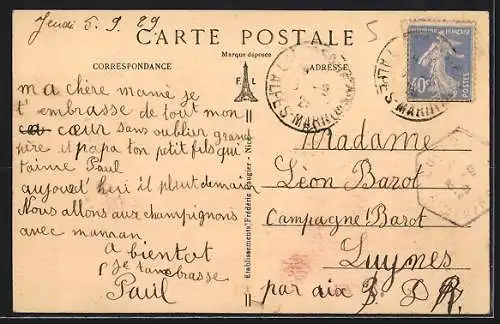 Jeudi 5.9.29
5
CARTE POSTALE
Marque déposée
CORRESPONDANCE
ADRESSE
F L
RÉPUBLIQUE FRANÇAISE
40c
POSTES
ALPES-MARITIMES
ma chère mamé je
t'embrasse de tout mon
cœur sans oublier grand
père et papa ton petit fils qui
t'aime Paul
aujourd'hui il pleut demain
Nous allons aux champignons
avec maman
a bientot
je t'embrasse
Paul
Etablissements Frédéric Laugier - Nice
Madame
Léon Barot
Campagne Barot
Luynes
par aix B. D. R.